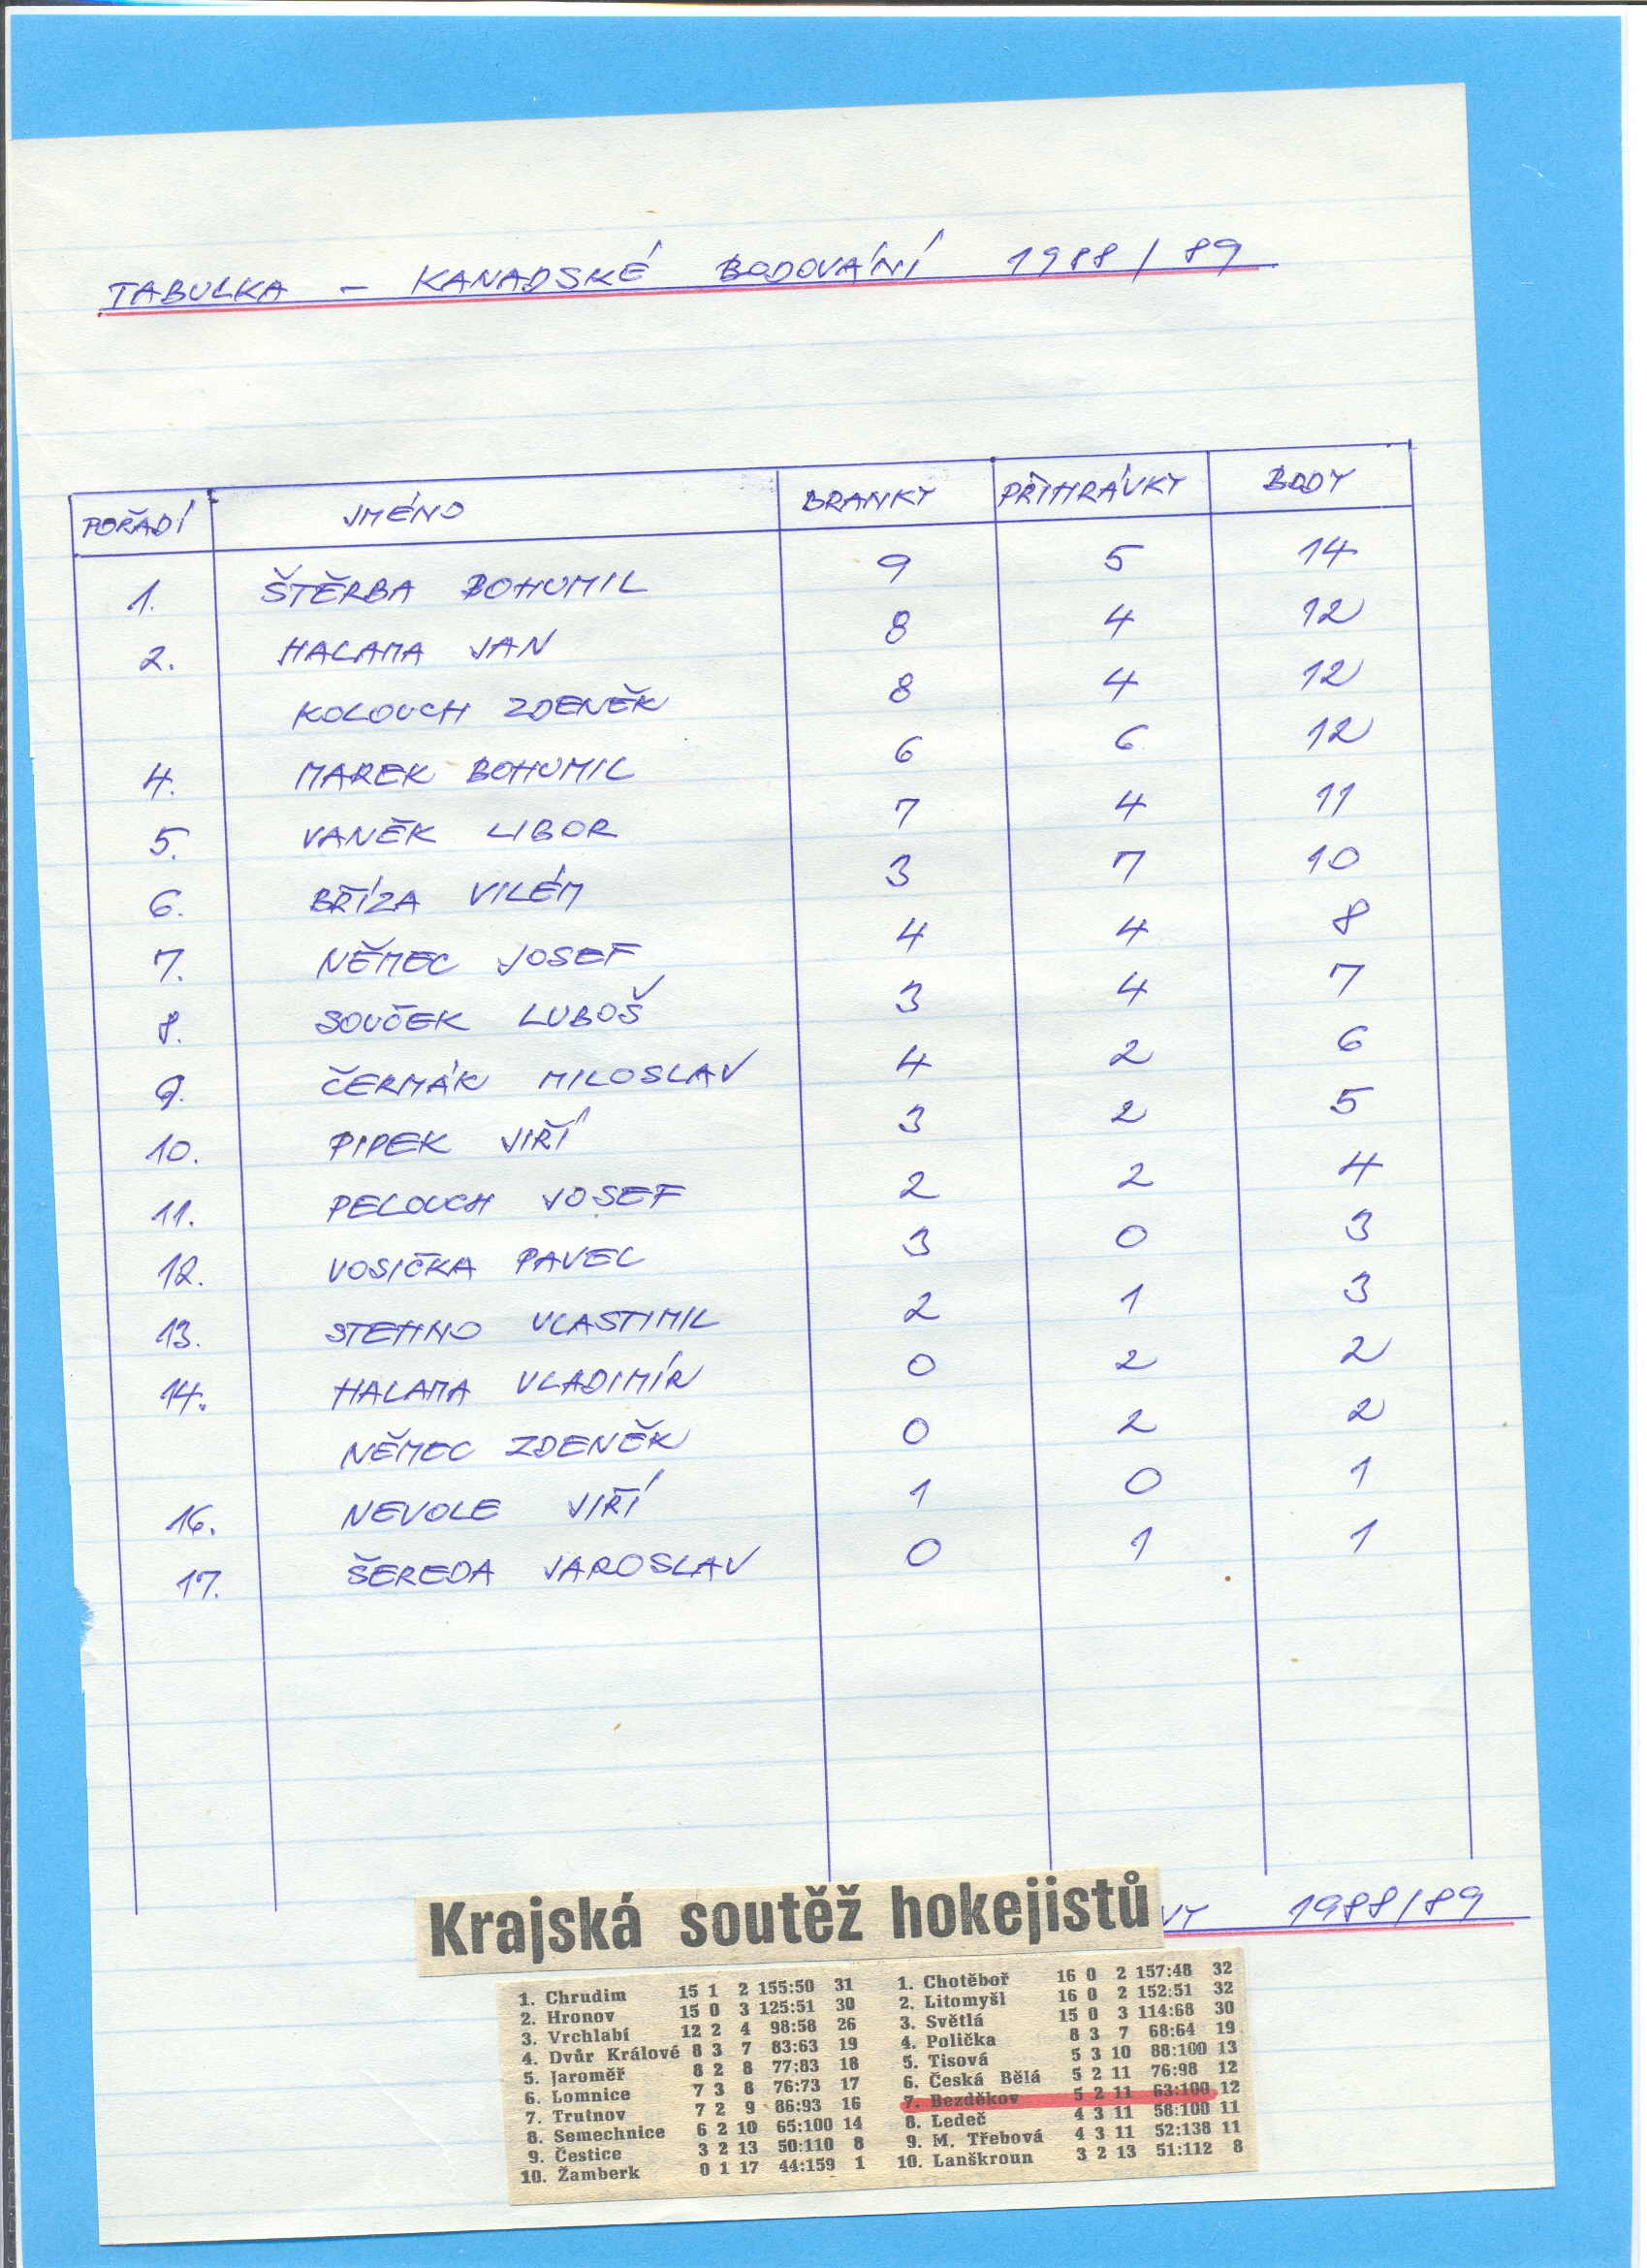 TABULKA – KANADSKÉ BODOVÁNÍ 1988/89
POŘADÍ JMÉNO BRANKY PŘIHRÁVKY BODY
1. ŠTĚRBA BOHUMIL 9 5 14
2. HALAMA JAN 8 4 12
KOLOUCH ZDENĚK 8 4 12
4. MAREK BOHUMIL 6 6 12
5. VANĚK LIBOR 7 4 11
6. BŘÍZA VILÉM 3 7 10
7. NĚMEC JOSEF 4 4 8
8. SOUČEK LUBOŠ 3 4 7
9. ČERMÁK MILOSLAV 4 2 6
10. PIPEK JIŘÍ 3 2 5
11. PELOUCH JOSEF 2 2 4
12. VOSIČKA PAVEL 3 0 3
13. STEHNO VLASTIMIL 2 1 3
14. HALAMA VLADIMÍR 0 2 2
NĚMEC ZDENĚK 0 2 2
16. NEVOLE JIŘÍ 1 0 1
17. ŠEREDA JAROSLAV 0 1 1
1988/89
Krajská soutěž hokejistů
1. Chrudim 15 1 2 155:50 31
2. Hronov 15 0 3 125:51 30
3. Vrchlabí 12 2 4 98:58 26
4. Dvůr Králové 8 3 7 83:63 19
5. Jaroměř 8 2 8 77:83 18
6. Lomnice 7 3 8 76:73 17
7. Trutnov 7 2 9 86:93 16
8. Semechnice 6 2 10 65:100 14
9. Čestice 3 2 13 50:110 8
10. Žamberk 0 1 17 44:159 1
1. Chotěboř 16 0 2 157:48 32
2. Litomyšl 16 0 2 152:51 32
3. Světlá 15 0 3 114:68 30
4. Polička 8 3 7 68:64 19
5. Tisová 5 3 10 88:100 13
6. Česká Bělá 5 2 11 76:98 12
7. Bezděkov 5 2 11 63:100 12
8. Ledeč 4 3 11 58:100 11
9. M. Třebová 4 3 11 52:138 11
10. Lanškroun 3 2 13 51:112 8